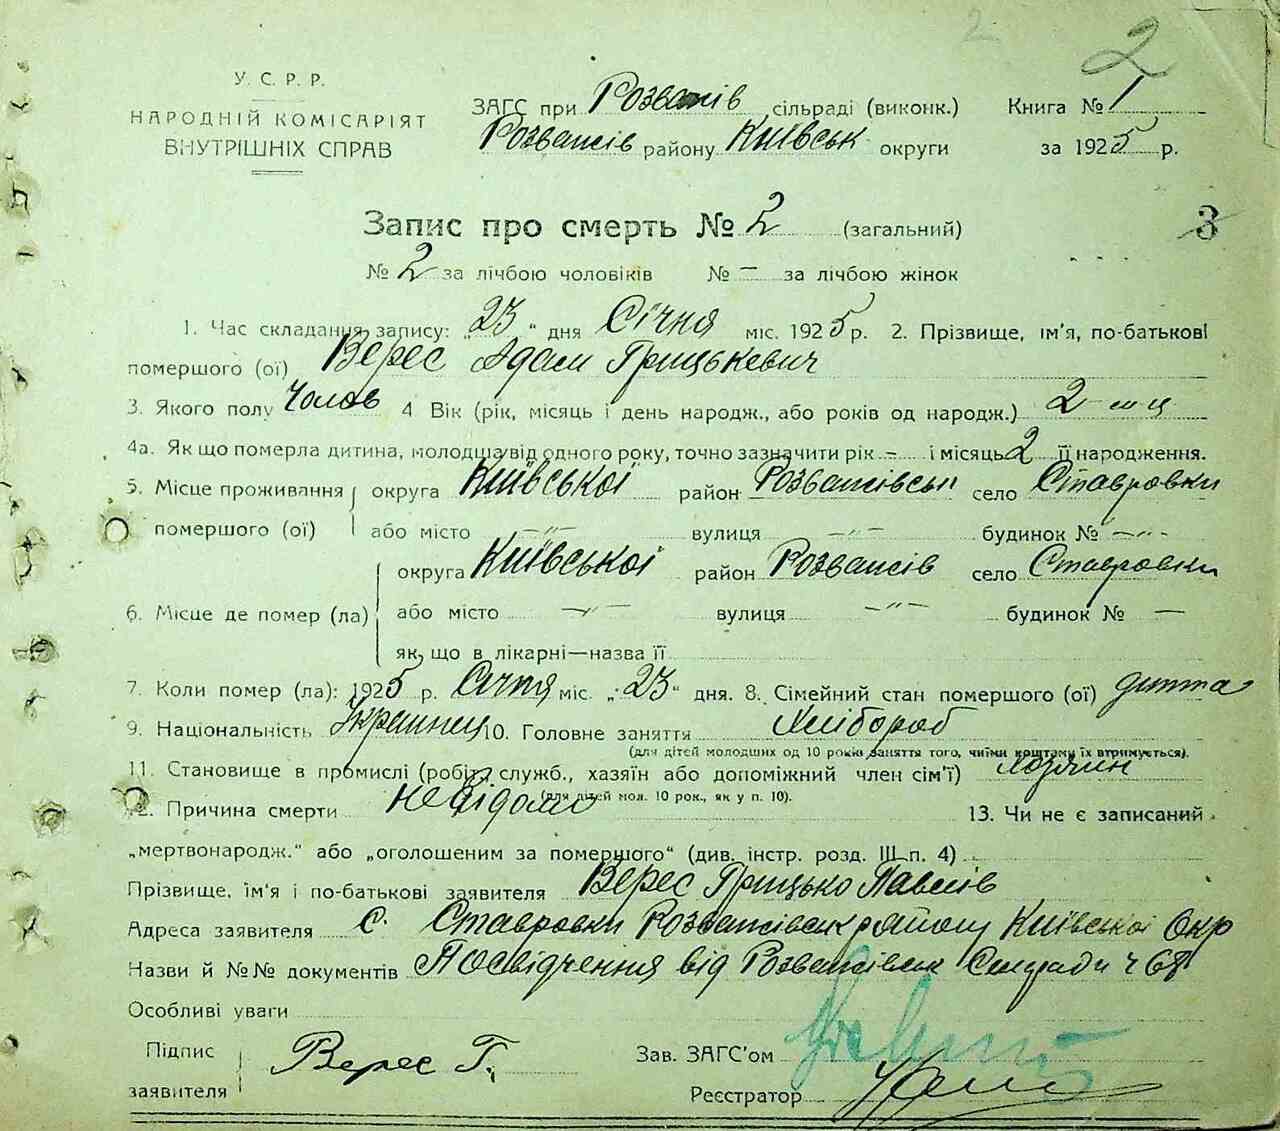 2
2
У. С. Р. Р.
НАРОДНІЙ КОМІСАРІЯТ
ВНУТРІШНІХ СПРАВ
ЗАГС при Розважів сільраді (виконк.) Книга № 1
Розважів району Київськ округи за 1925 р.
Запис про смерть № 2 (загальний) 3
№ 2 за лічбою чоловіків № — за лічбою жінок
1. Час складання запису: „23" дня Січня міс. 1925 р. 2. Прізвище, ім'я, по-батькові
помершого (ої) Верес Адам Грицькевич
3. Якого полу Чолов 4 Вік (рік, місяць і день народж., або років од народж.) 2 м-ц
4а. Як що померла дитина, молодша від одного року, точно зазначити рік — і місяць 2 її народження.
5. Місце проживання округа Київської район Розважівськ село Ставровки
помершого (ої) або місто —"— вулиця —"— будинок № —"—
округа Київської район Розважів село Ставровки
6. Місце де помер (ла) або місто —"— вулиця —"— будинок № —
як, що в лікарні—назва її
7. Коли помер (ла): 1925 р. Січня міс. „23" дня. 8. Сімейний стан помершого (ої) дитта
9. Національність Українець 10. Головне заняття Хлібороб
(для дітей молодших од 10 років заняття того, чиїми коштами їх втримується).
11. Становище в промислі (робітн. службу., хазяїн або допоміжний член сім'ї) хозяин
(для дітей мол. 10 рок., як у п. 10).
12. Причина смерти невідомо 13. Чи не є записаний
„мертвонародж." або „оголошеним за помершого" (див. інстр. розд. III п. 4)
Прізвище, ім'я і по-батькові заявителя Верес Грицько Павлів
Адреса заявителя с. Ставровки Розважівськ району Київської Окр
Назви й №№ документів Посвідчення від Розважівськ Сильради ч 68
Особливі уваги
Підпис
заявителя Верес Г.
Зав. ЗАГС'ом
Реєстратор